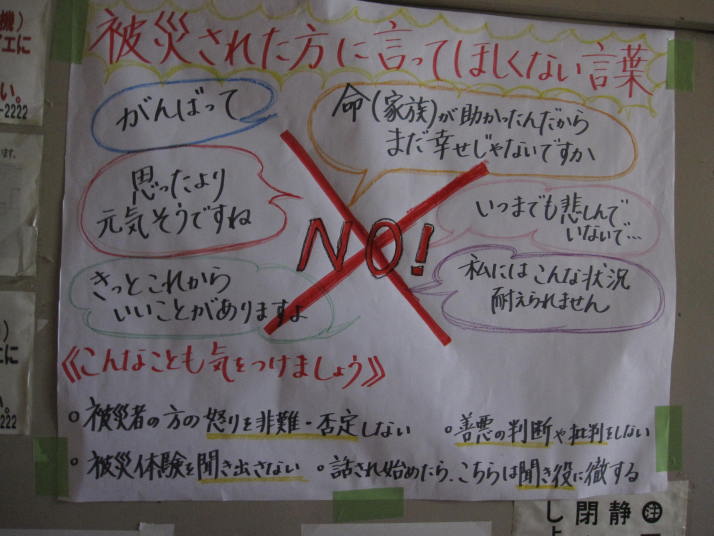 被災された方に言ってほしくない言葉
がんばって
命(家族)が助かったんだから
まだ幸せじゃないですか
思ったより
元気そうですね
NO!
いつまでも悲しんで
いないで…
きっとこれから
いいことがありますよ
私にはこんな状況
耐えられません
《こんなことも気をつけましょう》
○被災者の方の怒りを非難・否定しない
○善悪の判断や批判をしない
○被災体験を聞き出さない
○話され始めたら、こちらは聞き役に徹する
機)
エに
い。
-2222
ます。
)
エに
い。
2222
注
静
閉
し